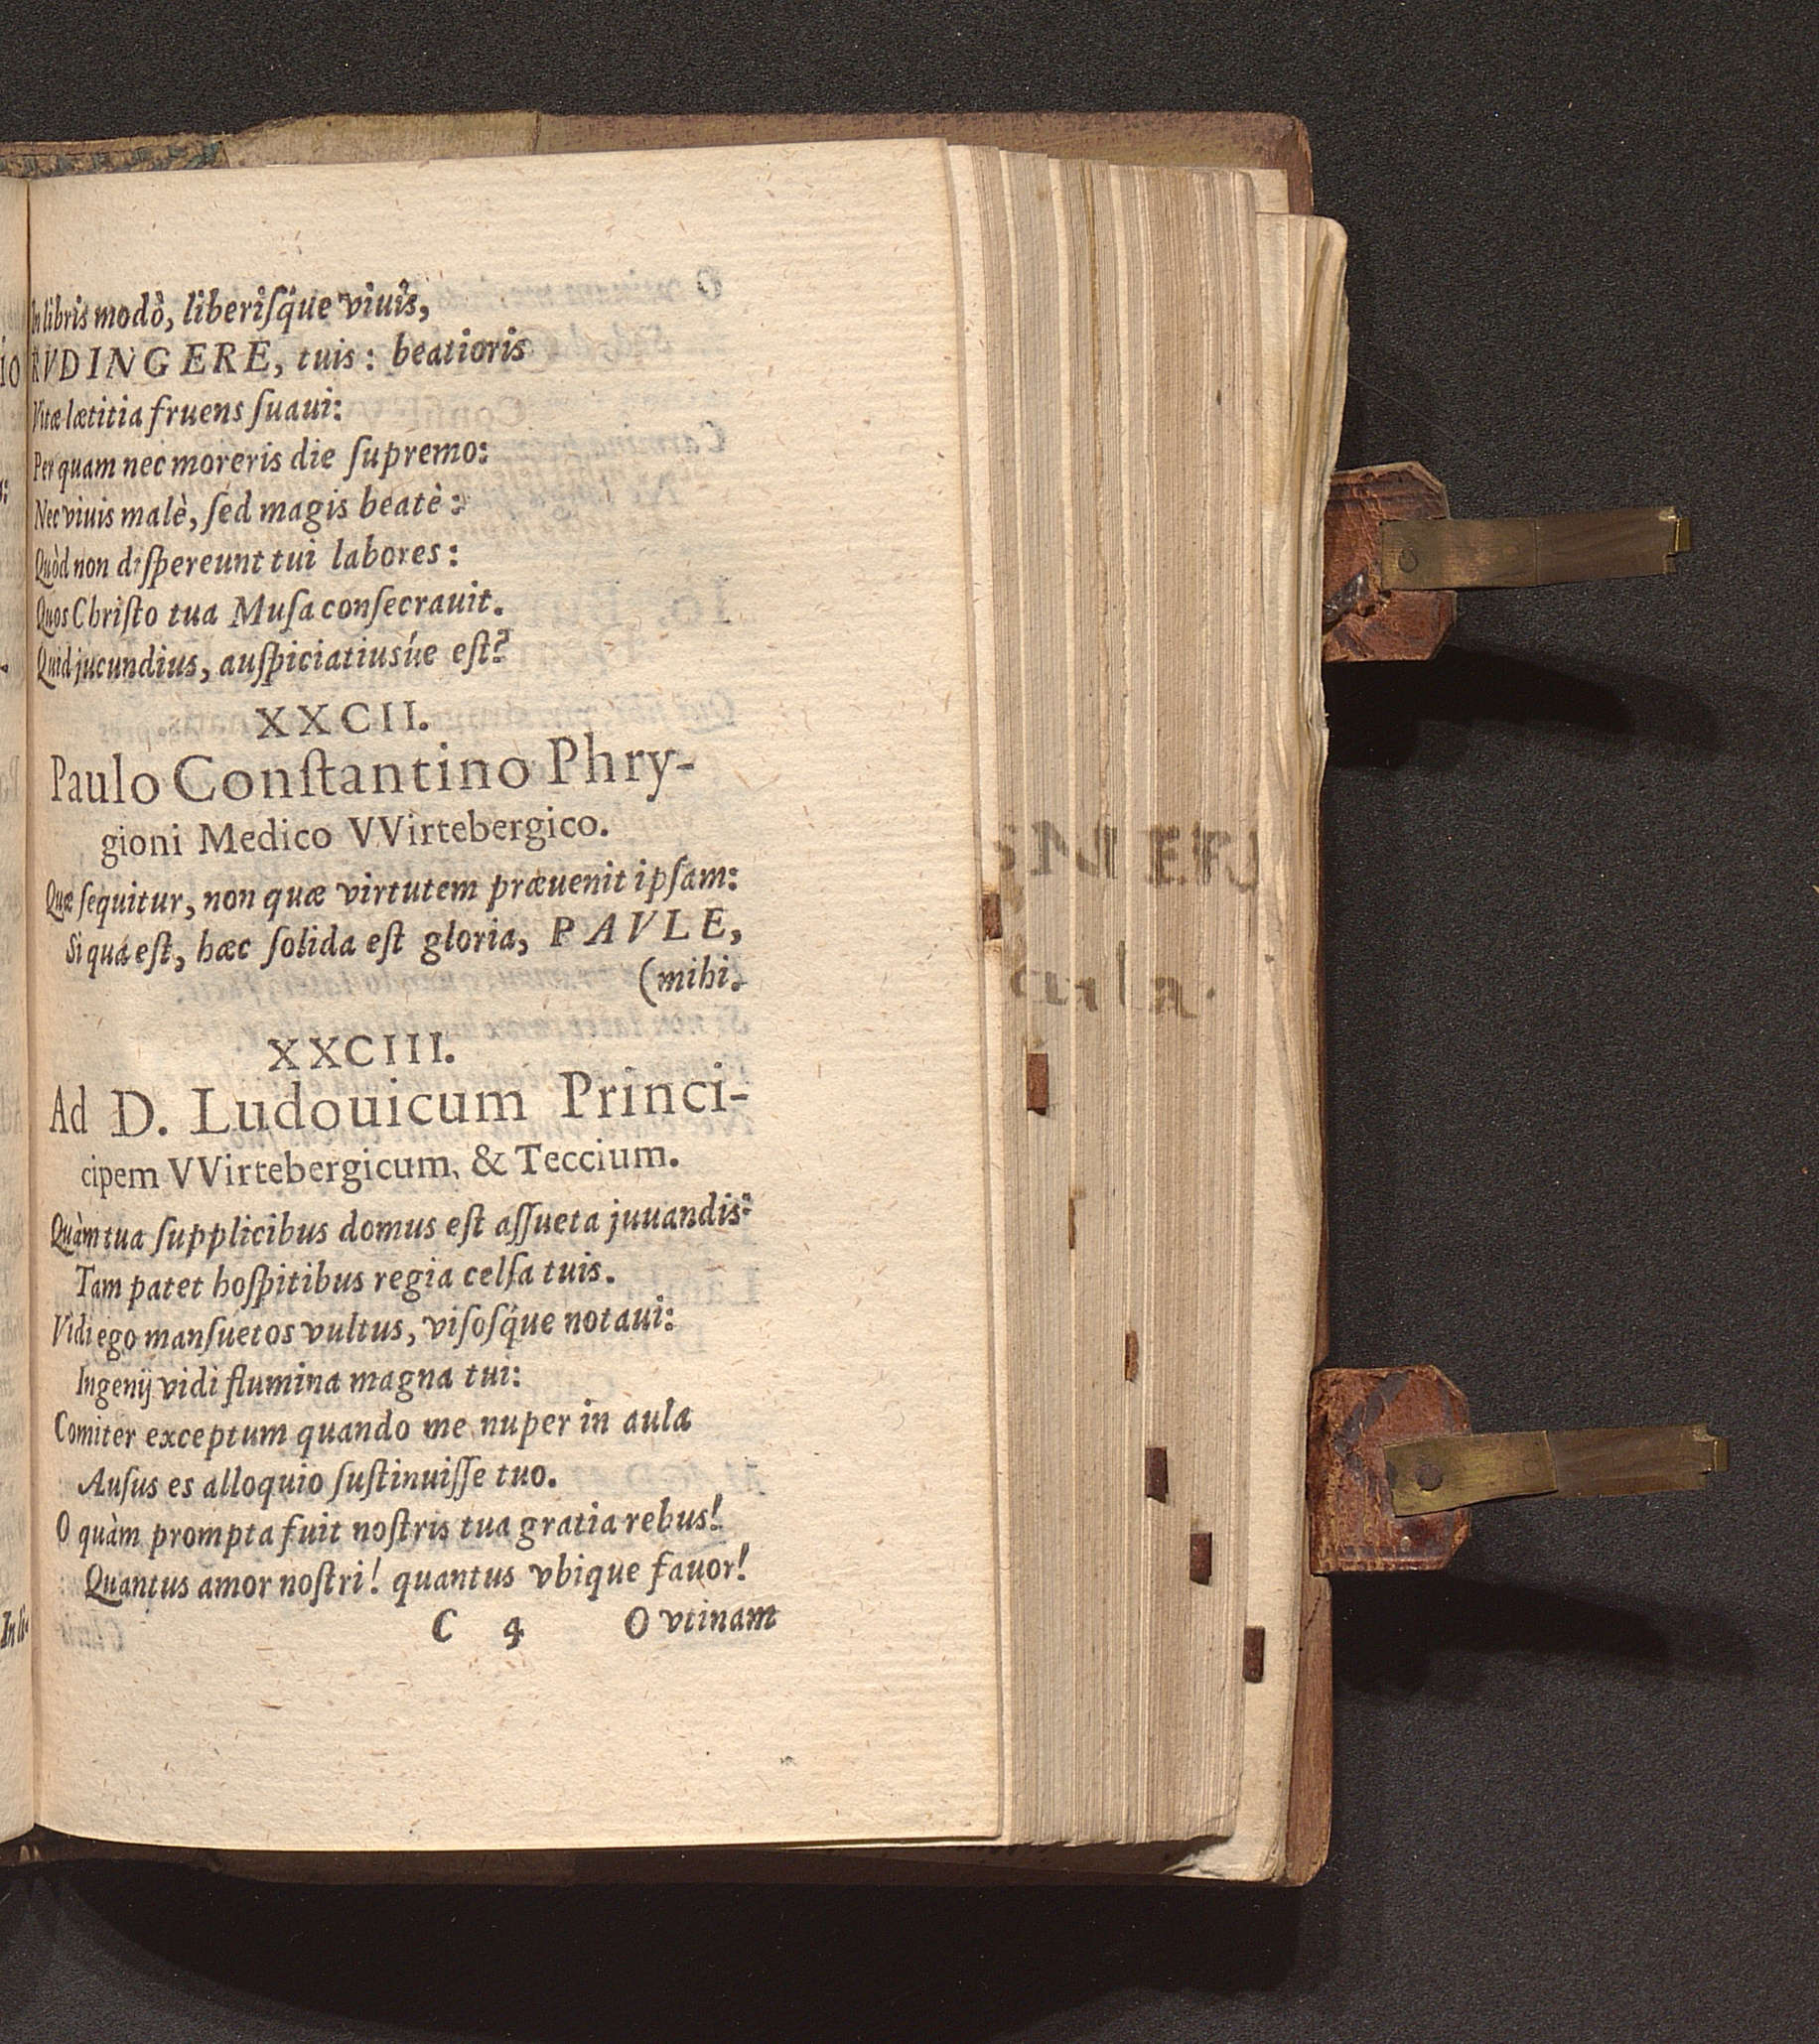 In libris modò, liberiſq́ue viuis,
RVDINGERE, tuis: beatioris
Vitæ lætitia fruens ſuaui:
Per quam nec moreris die ſupremo:
Nec viuis malè, ſed magis beatè:
Quòd non diſpereunt tui labores:
Quos Chriſto tua Muſa conſecrauit.
Quid jucundius, auſpiciatiusúe eſt?
XXCII.
Paulo Conſtantino Phry-
gioni Medico VVirtebergico.
Quæ ſequitur, non quæ virtutem præuenit ipſam:
Si qua eſt, hæc ſolida eſt gloria, PAVLE,
(mihi.
XXCIII.
Ad D. Ludouicum Princi-
cipem VVirtebergicum, & Teccium.
Quàm tua ſupplicibus domus eſt aſſueta juuandis:
Tam patet hoſpitibus regia celſa tuis.
Vidi ego manſuetos vultus, viſoſq́ue notaui:
Ingenij vidi flumina magna tui:
Comiter exceptum quando me nuper in aula
Auſus es alloquio ſuſtinuiſſe tuo.
O quàm prompta fuit noſtris tua gratia rebus!
Quantus amor noſtri! quantus vbique fauor!
C 4 O vtinam